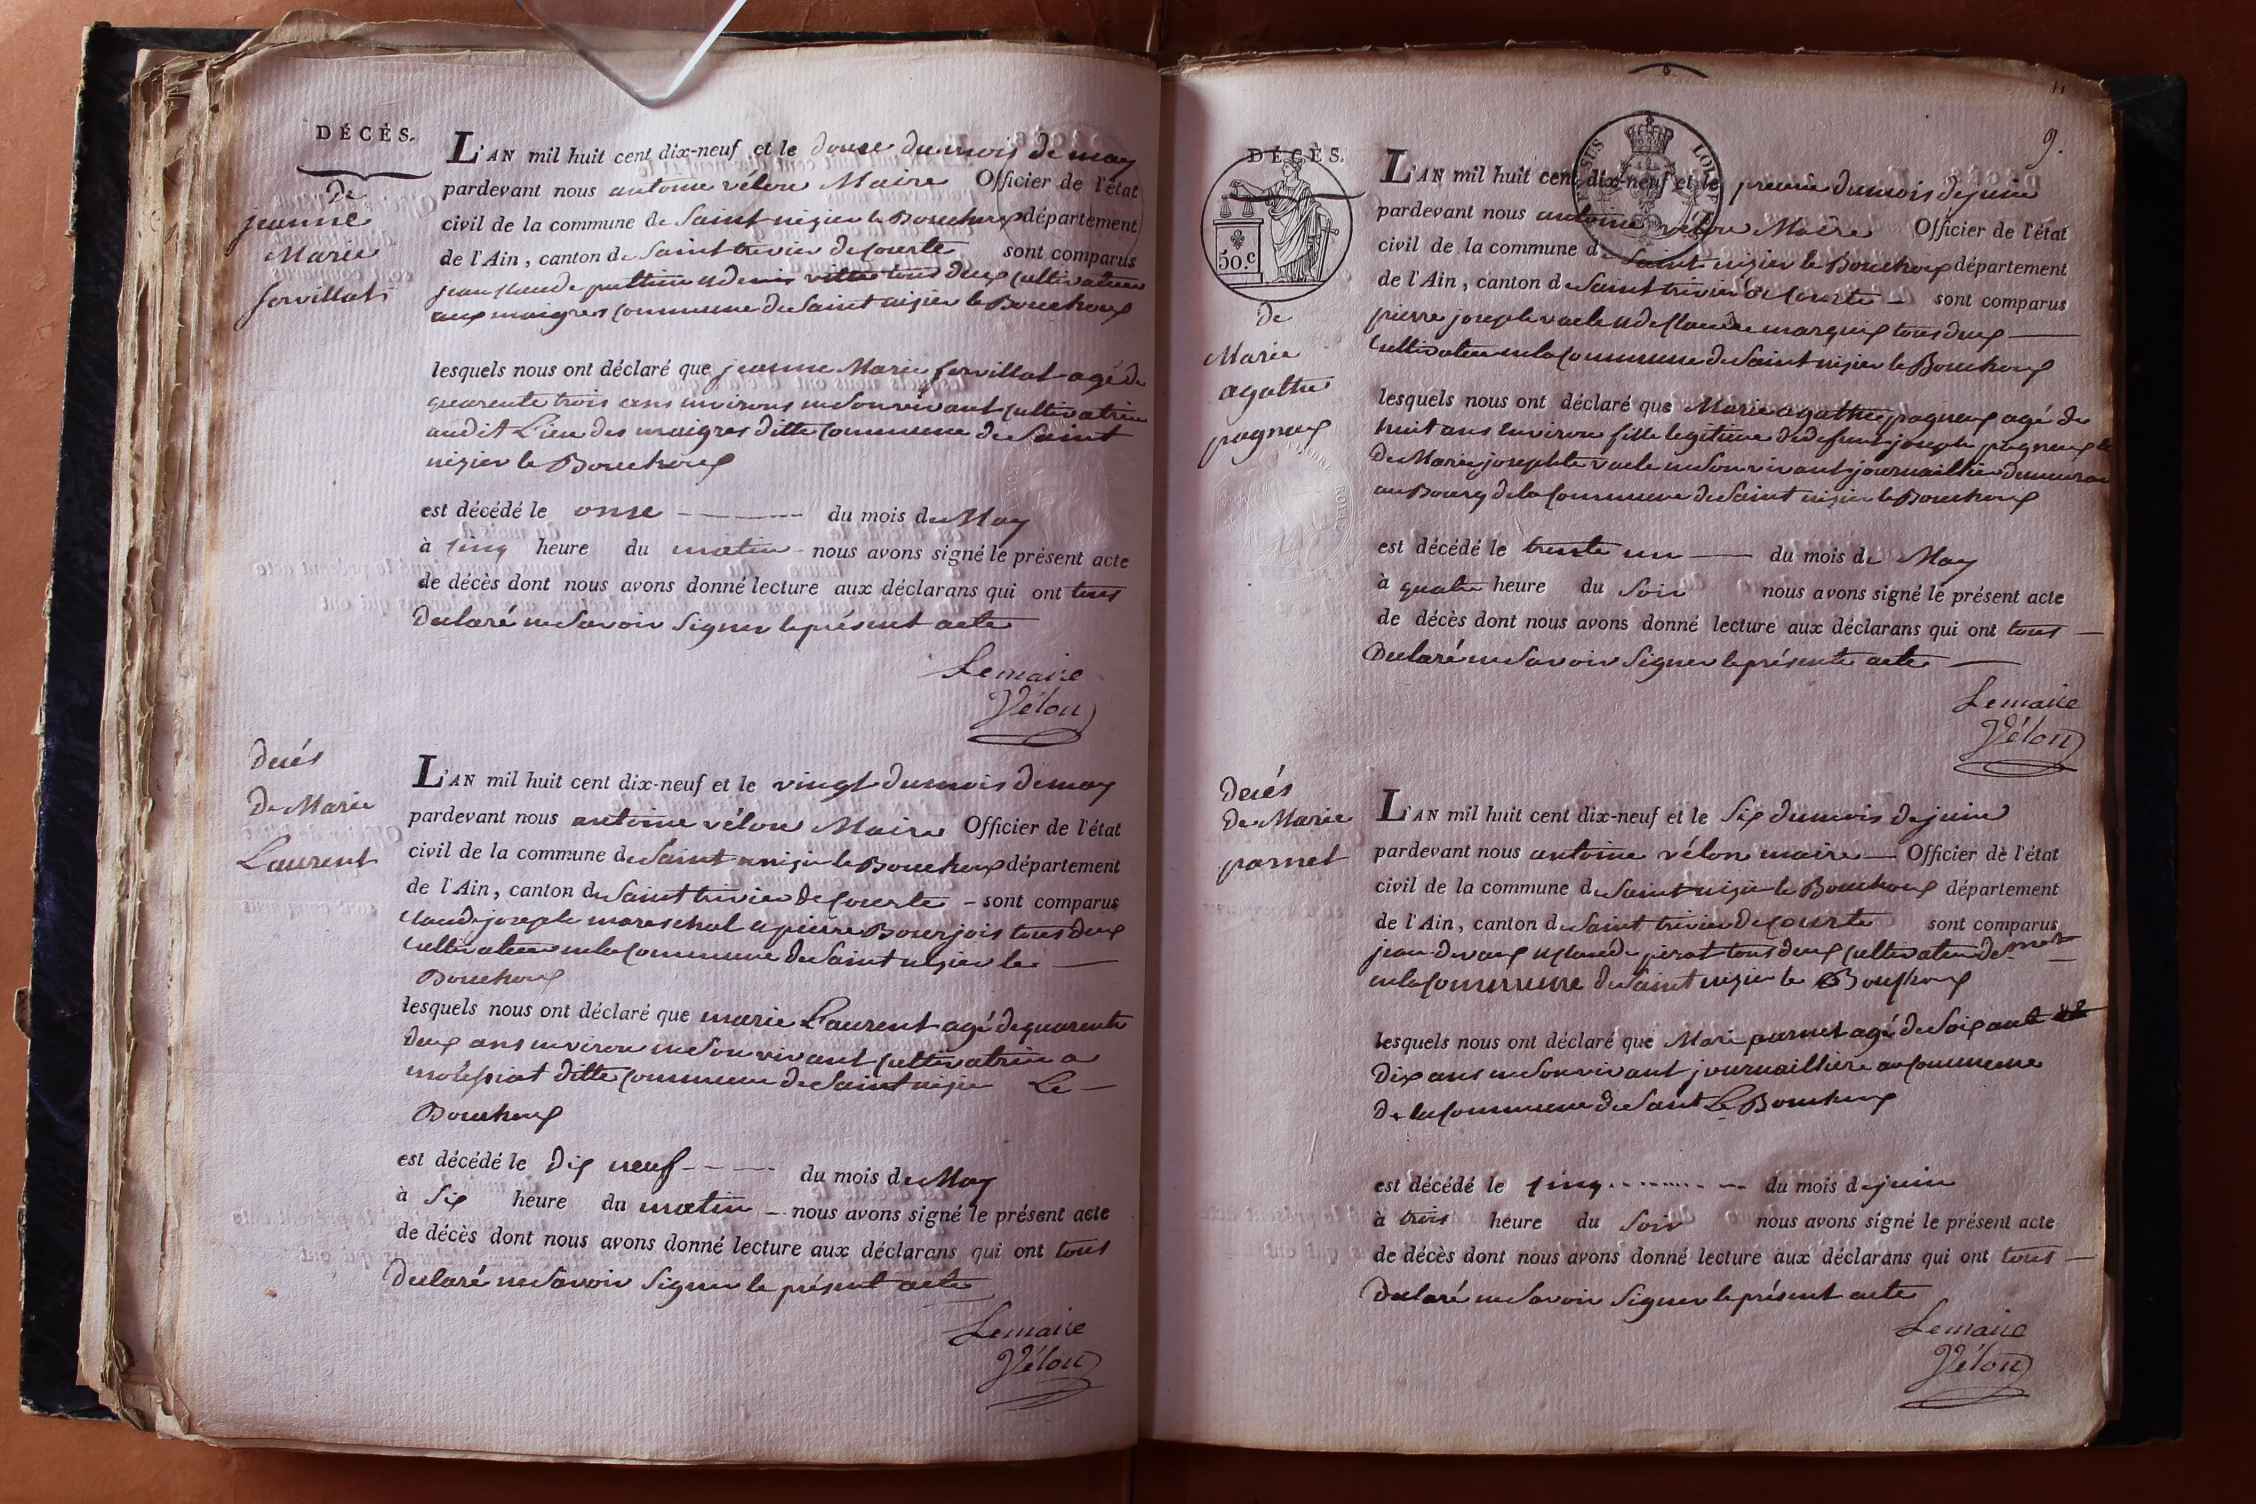 DÉCÈS.
de
jeanne
Marie
servillat
L'AN mil huit cent dix-neuf et le douze du mois de may
pardevant nous antoine vélon Maire Officier de l'état
civil de la commune de Saint nizier le Bouchoux département
de l'Ain, canton de Saint trivier de Courte sont comparus
jean claude et denis tous deux cultivateur
aux maigres commune de Saint nizier le Bouchoux
lesquels nous ont déclaré que jeanne Marie servillat agé de
quarente trois ans environs en son vivant cultivatrice
audit Lieu des maigres ditte commune de Saint
nizier le Bouchoux
est décédé le onze du mois de May
à cinq heure du matin nous avons signé le présent acte
de décès dont nous avons donné lecture aux déclarans qui ont tous
declaré ne savoir signer le présent acte
Lemaire
Vélon
decés
de Marie
Laurent
L'AN mil huit cent dix-neuf et le vingt du mois de may
pardevant nous antoine vélon Maire Officier de l'état
civil de la commune de Saint nizier le Bouchoux département
de l'Ain, canton de Saint trivier de Courte - sont comparus
claude joseph mareschal et pierre Bourjois tous deux
cultivateur en la commune de Saint nizier le
Bouchoux
lesquels nous ont déclaré que marie Laurent agé de quarente
deux ans environ en son vivant cultivatrice a
ditte commune de Saint nizier Le
Bouchoux
est décédé le dix neuf du mois de May
à Six heure du matin nous avons signé le présent acte
de décès dont nous avons donné lecture aux déclarans qui ont tous
declaré ne savoir signer le présent acte
Lemaire
Vélon
9.
DÉCÈS.
50.c
de
Marie
agathe
pagneux
L'AN mil huit cent dix-neuf et le premie du mois de juin
pardevant nous antoine vélon Maire Officier de l'état
civil de la commune de Saint nizier le Bouchoux département
de l'Ain, canton de Saint trivier de Courte - sont comparus
pierre joseph vacle et de claude marquis tous deux
Cultivateur en la commune de Saint nizier le Bouchoux
lesquels nous ont déclaré que Marie agathe pagneux agé de
huit ans Environ fille legitime de defunt joseph pagneux et
de Marie josephte vacle en son vivant journaillier
au Bourg de la Commune de Saint nizier le Bouchoux
est décédé le trente un du mois de May
à quatre heure du Soir nous avons signé le présent acte
de décès dont nous avons donné lecture aux déclarans qui ont tous
Declaré ne savoir signer le présente acte
Lemaire
Vélon
decés
de Marie
parnet
L'AN mil huit cent dix-neuf et le Six du mois de juin
pardevant nous antoine vélon maire Officier de l'état
civil de la commune de Saint nizier le Bouchoux département
de l'Ain, canton de Saint trivier de Courte sont comparus
jean devaux et claude perat tous deux cultivateur
en la commune de Saint nizier le Bouchoux
lesquels nous ont déclaré que Mari parnet agé de Soixante
Dix ans en son vivant journailliere au commune
de la commune de Saint Le Bouchoux
est décédé le cinq du mois de juin
à trois heure du Soir nous avons signé le présent acte
de décès dont nous avons donné lecture aux déclarans qui ont tous
Declaré ne savoir signer le présent acte
Lemaire
Vélon